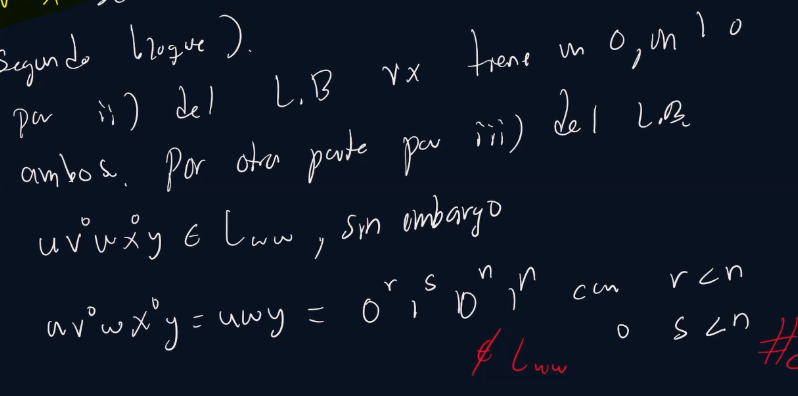 segundo bloque).
por ii) del L.B vx tiene un 0, un 1 o
ambos. Por otra parte por iii) del L.B.
uv⁰wx⁰y ∈ Lww, sin embargo
uv⁰wx⁰y = uwy = 0ʳ1ˢ0ⁿ1ⁿ con r<n
o s<n
∉ Lww #